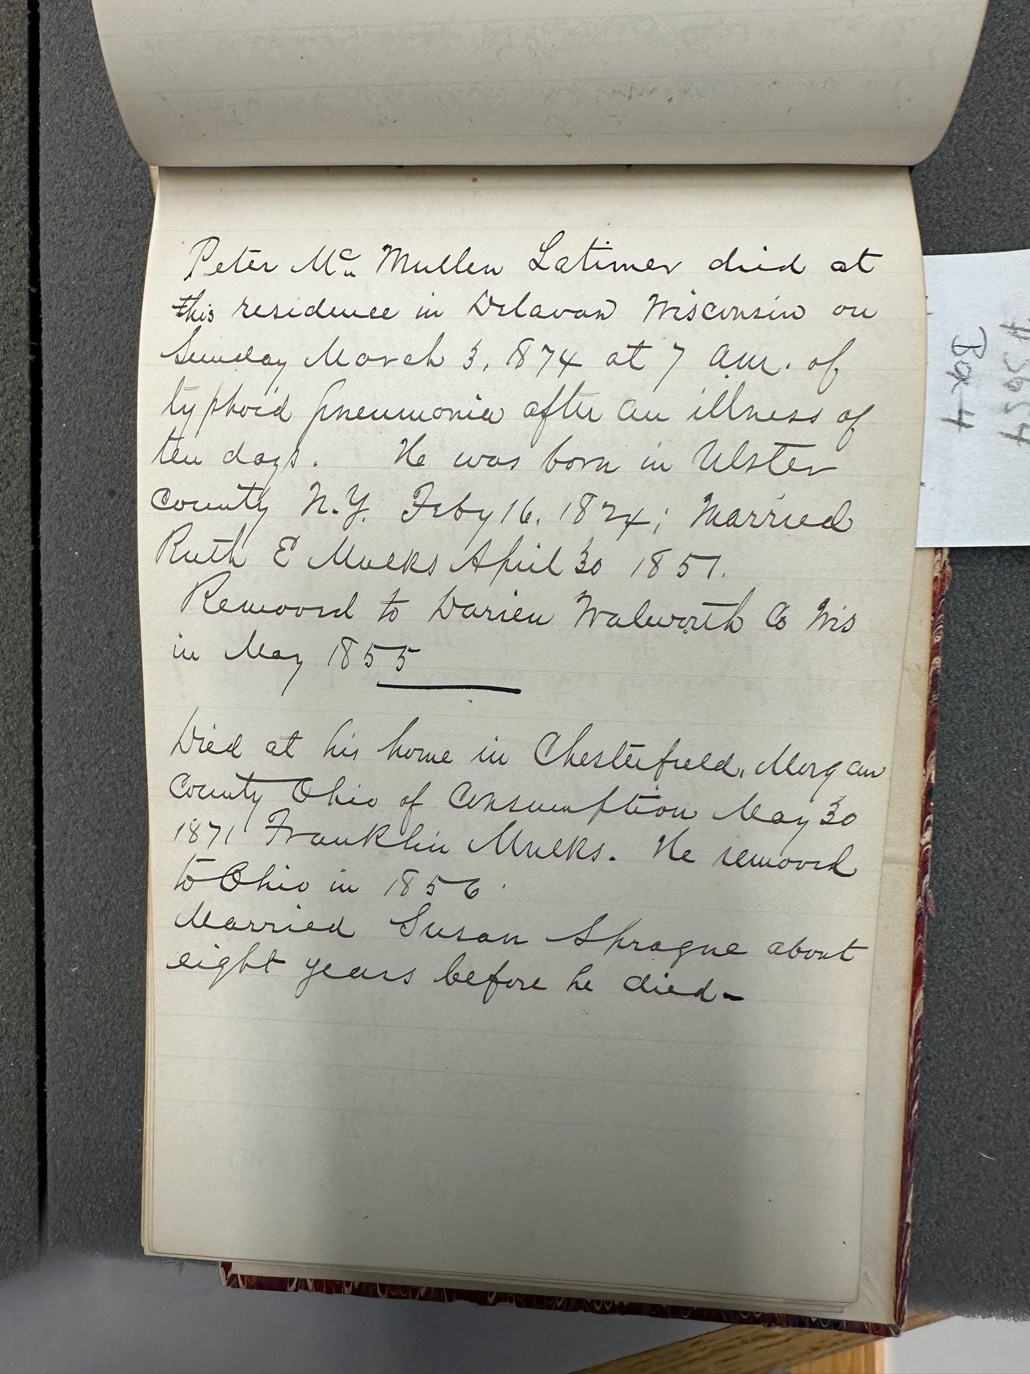 Peter Mc Mullen Latimer died at
this residence in Delavan Wisconsin on
Sunday March 3, 1874 at 7 a.m. of
typhoid pneumonia after an illness of
ten days. He was born in Ulster
County N.Y. Feby 16, 1824; Married
Ruth E Mulks April 30 1851.
Removed to Darien Walworth Co Wis
in May 1855
Died at his home in Chesterfield, Morgan
County Ohio of Consumption May 30
1871 Franklin Mulks. He removed
to Ohio in 1856
Married Susan Sprague about
eight years before he died-
Box 4